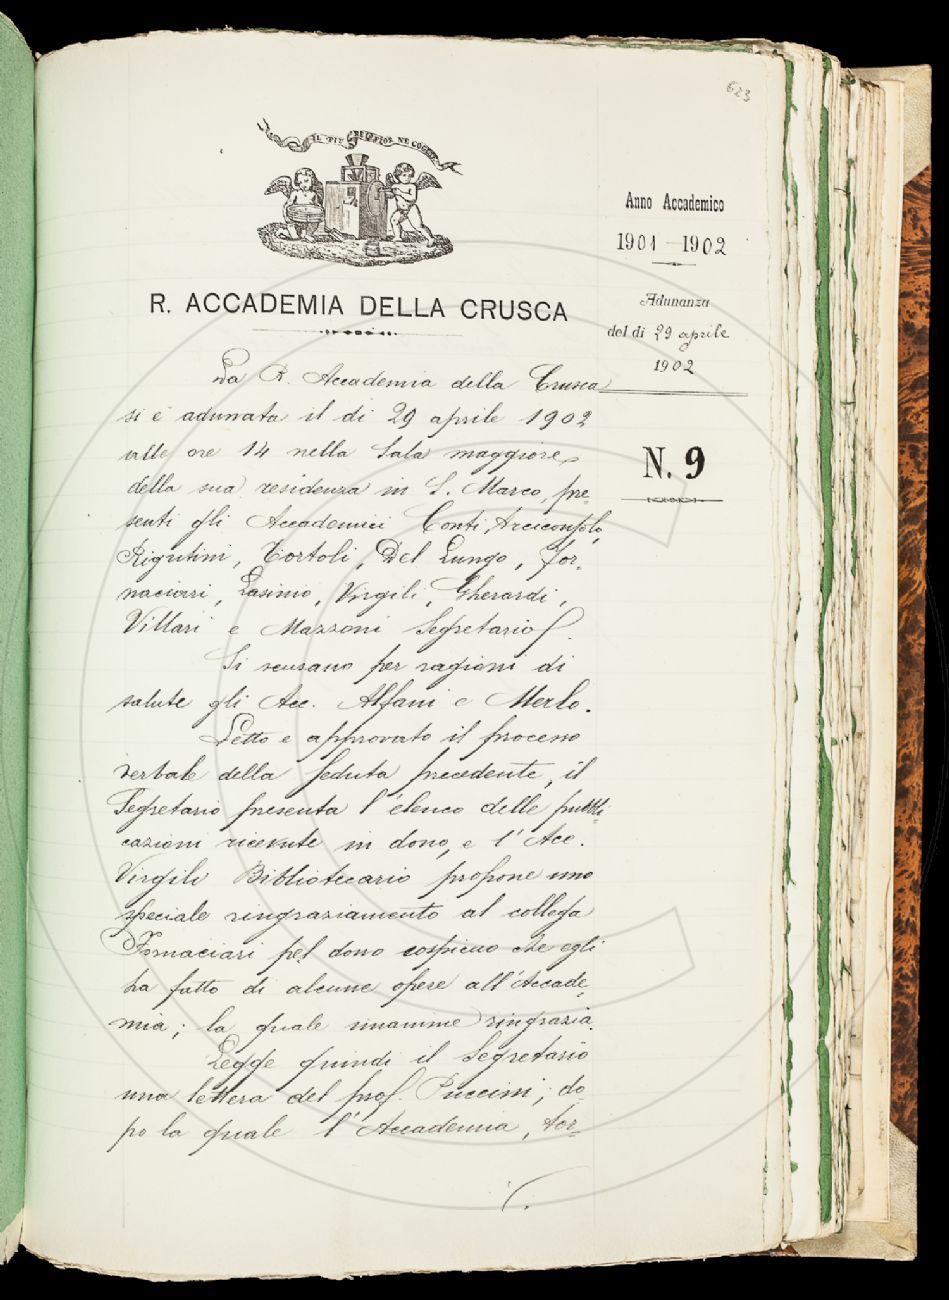 623
IL PIÙ BEL FIOR NE COGLIE
R. ACCADEMIA DELLA CRUSCA
Anno Accademico
1901-1902
Adunanza
del dì 29 aprile
1902
N. 9
La R. Accademia della Crusca
si è adunata il dì 29 aprile 1902
alle ore 14 nella Sala maggiore
della sua residenza in S. Marco, pre-
senti gli Accademici Conti, Arciconsolo,
Rigutini, Tortoli, Del Lungo, For-
naciari, Lasinio, Virgili, Gherardi,
Villari e Mazzoni Segretario.
Si scusano per ragioni di
salute gli Acc. Alfani e Merlo.
Letto e approvato il processo
verbale della seduta precedente, il
Segretario presenta l'elenco delle pubbli-
cazioni ricevute in dono, e l'Acc.
Virgili Bibliotecario propone uno
speciale ringraziamento al collega
Fornaciari pel dono cospicuo che egli
ha fatto di alcune opere all'Accade-
mia; la quale unanime ringrazia.
Legge quindi il Segretario
una lettera del prof. Puccini; do-
po la quale l'Accademia, tor-